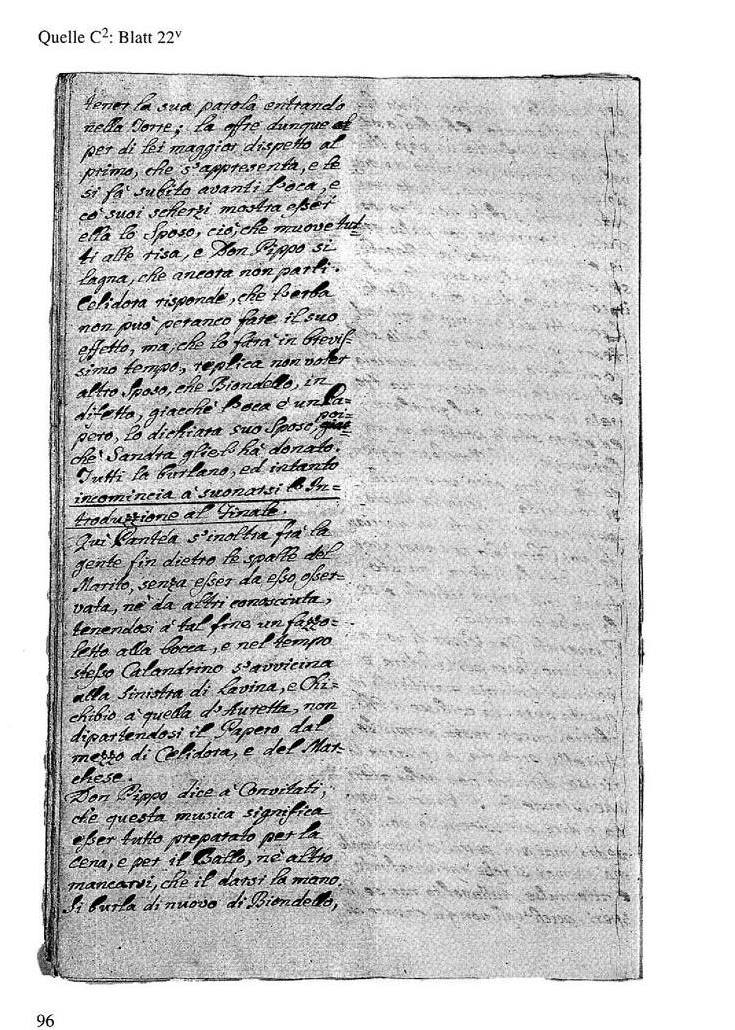 Quelle C²: Blatt 22ᵛ
tener la sua parola entrando
nella Torre; la offre dunque al
per di lei maggior dispetto al
primo, che s'appresenta, e le
si fà subito avanti l'oca, e
co' suoi scherzi mostra esser
ella lo Sposo, ciò, che muove tut-
ti alle risa, e Don Pippo si
lagna, che ancora non parli.
Celidora risponde, che l'erba
non può peranco fare il suo
effetto, ma, che lo farà in brevis-
simo tempo, replica non voler
altro Sposo, che Biondello, in
difetto, giacchè l'oca è un Pa=
pero, lo dichiara suo Sposo, poi=
chè Sandra gliel' hà donato.
Tutti la burlano, ed intanto
incomincia à suonarsi l'In=
troduzzione al Finale.
Quì Pantea s'inoltra frà la
gente fin dietro le spalle del
Marito, senza esser da esso osser=
vata, nè da altri conosciuta,
tenendosi à tal fine un fazzo=
letto alla bocca, e nel tempo
stesso Calandrino s'avvicina
alla sinistra di Lavina, e Chi=
chibio à quella d'Auretta, non
dipartendosi il Papero dal
mezzo di Celidora, e del Mar-
chese.
Don Pippo dice à Convitati,
che questa musica significa
esser tutto preparato per la
Cena, e per il Ballo, nè altro
mancarvi, che il darsi la mano.
Si burla di nuovo di Biondello,
96